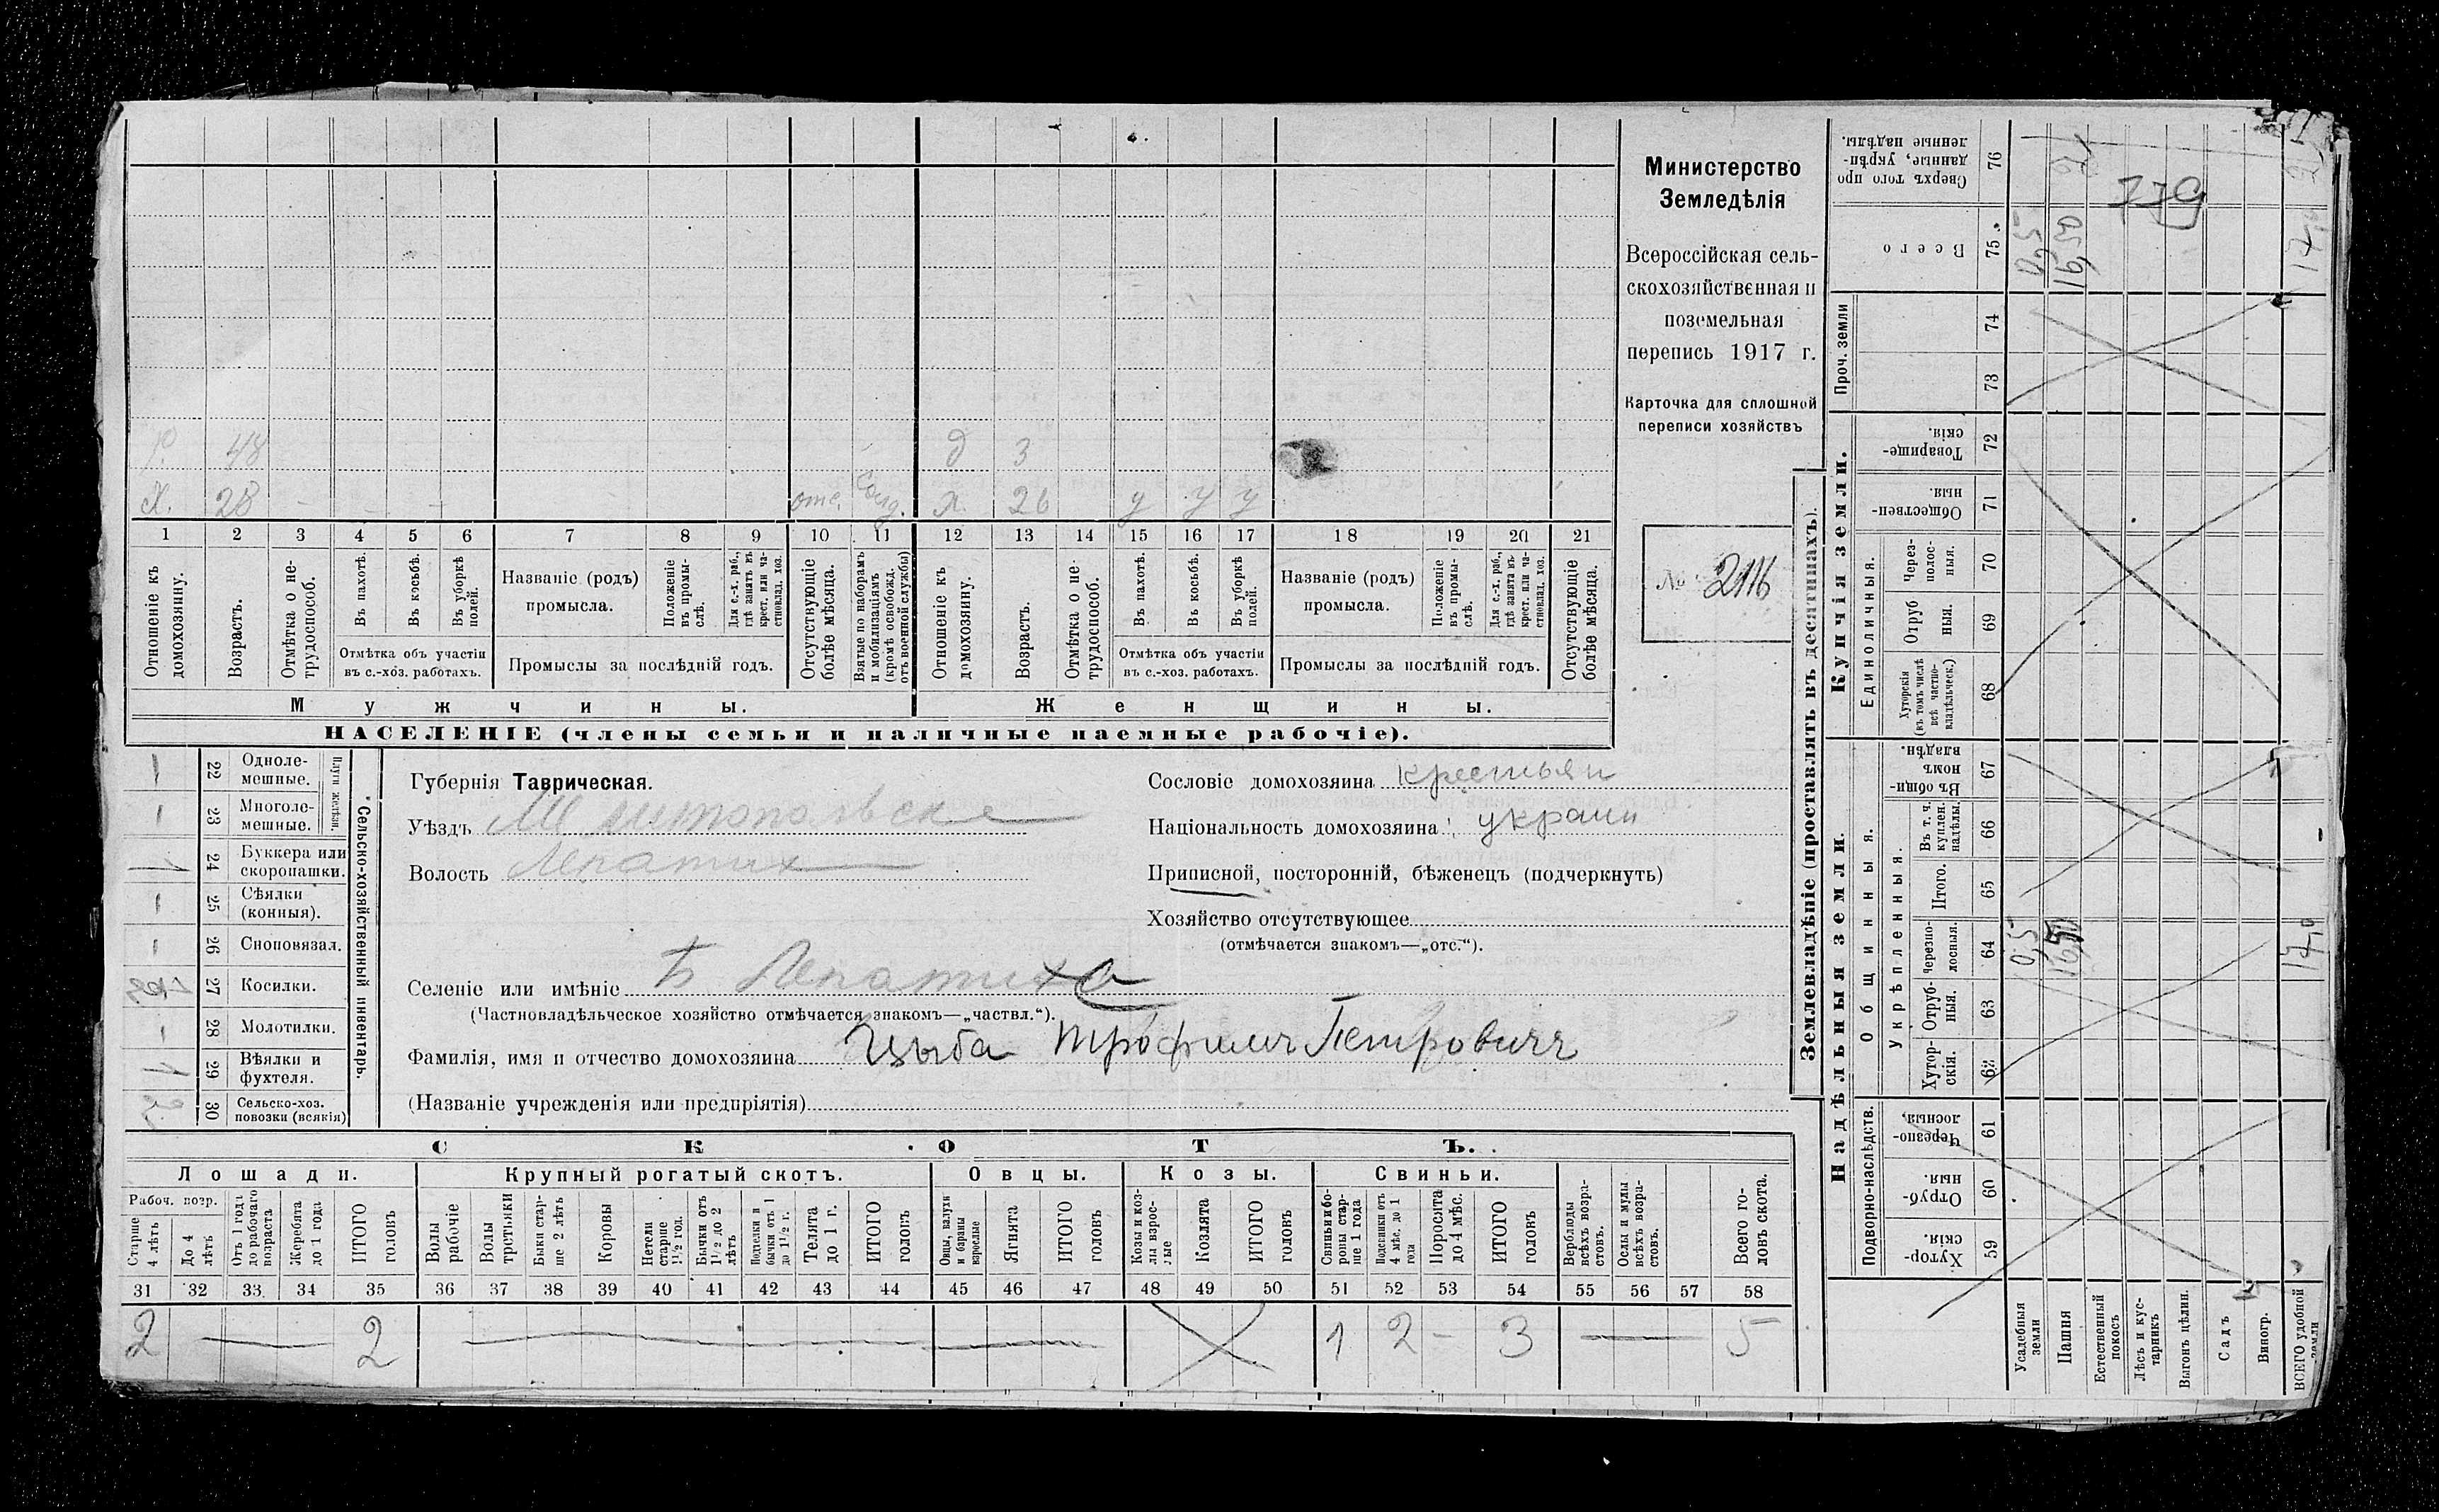 Р. 48 д 3
Х. 28 — — — отс. Х. 26 у у у
1 2 3 4 5 6 7 8 9 10 11 12 13 14 15 16 17 18 19 20 21
Отношеніе къ домохозяину.
Возрастъ.
Отмѣтка о не-
трудоспособ.
Въ пахотѣ.
Въ косьбѣ.
Въ уборкѣ
полей.
Отмѣтка объ участіи
въ с.-хоз. работахъ.
Названіе (родъ)
промысла.
Положеніе
въ промы-
слѣ.
Для с.-х. раб.,
гдѣ занятъ въ
крест. или ча-
стновлад. хоз.
Промыслы за послѣдній годъ.
Отсутствующіе
болѣе мѣсяца.
Взятые по наборамъ
и мобилизаціямъ
(кромѣ освобожд.
отъ военной службы)
Отношеніе къ
домохозяину.
Возрастъ.
Отмѣтка о не-
трудоспособ.
Въ пахотѣ.
Въ косьбѣ.
Въ уборкѣ
полей.
Отмѣтка объ участіи
въ с.-хоз. работахъ.
Названіе (родъ)
промысла.
Положеніе
въ промы-
слѣ.
Для с.-х. раб.,
гдѣ занята въ
крест. или ча-
стновлад. хоз.
Промыслы за послѣдній годъ.
Отсутствующіе
болѣе мѣсяца.
Мужчины.
Женщины.
НАСЕЛЕНІЕ (члены семьи и наличные наемные рабочіе).
Министерство
Земледѣлія
Всероссійская сель-
скохозяйственная и
поземельная
перепись 1917 г.
Карточка для сплошной
переписи хозяйствъ
№ 2116
22 Одноле-
мешные.
23 Многоле-
мешные.
Плуги желѣзн.
1 24 Буккера или
скоропашки.
25 Сѣялки
(конныя).
26 Сноповязал.
27 Косилки.
28 Молотилки.
1 29 Вѣялки и
фухтеля.
30 Сельско-хоз.
повозки (всякія)
Сельско-хозяйственный инвентарь.
Губернія Таврическая.
Уѣздъ Мелитопольск
Волость Лепатих
Сословіе домохозяина крестьян
Національность домохозяина украин
Приписной, посторонній, бѣженецъ (подчеркнуть)
Хозяйство отсутствующее
(отмѣчается знакомъ—„отс.“).
Селеніе или имѣніе Б Лепатиха
(Частновладѣльческое хозяйство отмѣчается знакомъ—„частвл.“).
Фамилія, имя и отчество домохозяина Цыба Трофимъ Петровичъ
(Названіе учрежденія или предпріятія)
СКОТЪ.
Лошади. Крупный рогатый скотъ. Овцы. Козы. Свиньи.
Рабоч. возр.
Старше
4 лѣтъ
До 4
лѣтъ
Отъ 1 года
до рабочаго
возраста
Жеребята
до 1 года
ИТОГО
головъ
Волы
рабочіе
Волы
третьяки
Быки стар-
ше 2 лѣтъ
Коровы
Нетели
старше
1½ год.
Бычки отъ
1½ до 2
лѣтъ
Подтелки и
бычки отъ 1
до 1½ г.
Телята
до 1 г.
ИТОГО
головъ
Овцы, валухи
и бараны
взрослые
Ягнята
ИТОГО
головъ
Козы и коз-
лы взрос-
лые
Козлята
ИТОГО
головъ
Свиньи и бо-
ровы стар-
ше 1 года
Подсвинки отъ
4 мѣс. до 1
года
Поросята
до 4 мѣс.
ИТОГО
головъ
Верблюды
всѣхъ возра-
стовъ.
Ослы и мулы
всѣхъ возра-
стовъ.
Всего го-
ловъ скота.
31 32 33 34 35 36 37 38 39 40 41 42 43 44 45 46 47 48 49 50 51 52 53 54 55 56 57 58
2 — 2 — — 1 2 – 3 — 5
Землевладѣніе (проставлять въ десятинахъ).
Надѣльныя земли.
Купчія земли.
Проч. земли
Подворно-наслѣдств.
Общинныя.
Укрѣпленныя.
Единоличныя.
Сверхъ того про
данные, укрѣп-
ленные надѣлы.
76
Всего
75
74
73
Товарище-
скія.
72
Обществен-
ныя.
71
Черезполос-
ныя.
70
Отруб
ныя.
69
Хуторскія
(въ томъ числѣ
всѣ частно-
владѣльческ.)
68
Въ общин-
номъ
владѣн.
67
Въ т. ч.
куплен.
надѣлы.
66
Итого.
65
Черезпо-
лосныя.
64
Отруб-
ныя.
63
Хутор-
скія.
62
Черезпо-
лосныя.
61
Отруб-
ныя.
60
Хутор-
скія.
59
Усадебныя
земли
0,55
0,55
Пашня
16,50
16,50
Естественный
покосъ
Лѣсъ и кус-
тарникъ
Выгонъ цѣлин.
Садъ
Виногр.
ВСЕГО удобной
земли
17,0